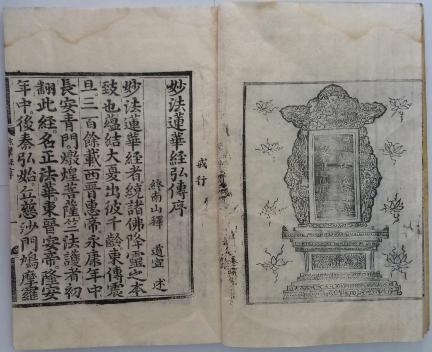 戒行
妙法蓮華經弘傳序
終南山釋 道宣 述
妙法蓮華經者統諸佛降靈之本
致也蘊結大夏出彼千齡東傳震
旦三百餘載西晉惠帝永康年中
長安青門燉煌菩薩竺法護者初
翻此經名正法華東晉安帝隆安
年中後秦弘始丘慈沙門鳩摩羅